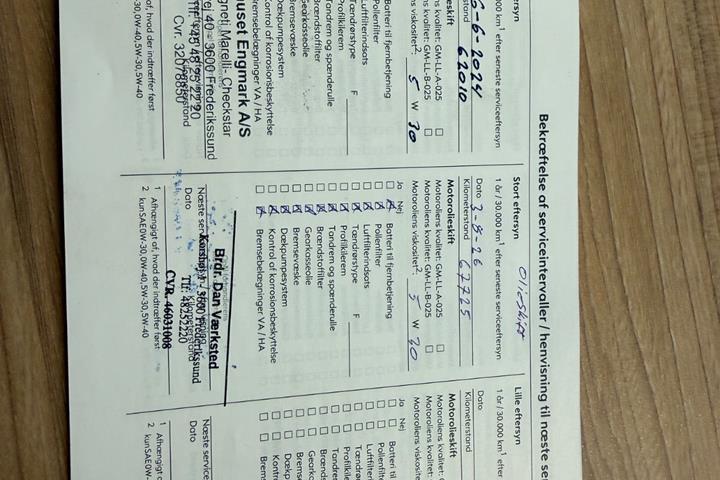 Bekræftelse af serviceintervaller / henvisning til næste se
eftersyn
000 km¹ efter seneste serviceeftersyn
6-6-2024
stand 62010
eskift
s kvalitet: GM-LL-A-025
s kvalitet: GM-LL-B-025
s viskositet²: 5 W 30
Batteri til fjernbetjening
Pollenfilter
Luftfilterindsats
Tændrørstype F
Profilkilerem
Tandrem og spænderulle
Brændstoffilter
Gearkasseolie
Bremsevæske
Dækpumpesystem
Kontrol af korrosionsbeskyttelse
Bremsebelægninger VA / HA
uset Engmark A/S
gneti Marelli- Checkstar
ej 40 - 3600 Frederikssund
Tlf +45 48 29 22 20
Cvr. 32078850
Kilometerstand
af, hvad der indtræffer først
0W-30,0W-40,5W-30,5W-40
Stort eftersyn Olieskift
1 år / 30.000 km¹ efter seneste serviceeftersyn
Dato 3-8-26
Kilometerstand 67725
Motorolieskift
Motoroliens kvalitet: GM-LL-A-025
Motoroliens kvalitet: GM-LL-B-025
Motoroliens viskositet²: 5 W 30
Ja Nej
Batteri til fjernbetjening
Pollenfilter
Luftfilterindsats
Tændrørstype F
Profilkilerem
Tandrem og spænderulle
Brændstoffilter
Gearkasseolie
Bremsevæske
Dækpumpesystem
Kontrol af korrosionsbeskyttelse
Bremsebelægninger VA / HA
Brdr. Dan Værksted
3600 Frederikssund
Næste
Dato Kilometerstand
Tlf: 48252220
CVR. 46031008
1 Afhængigt af, hvad der indtræffer først
2 kunSAE0W-30,0W-40,5W-30,5W-40
Lille eftersyn
1 år / 30.000 km¹ efter
Dato
Kilometerstand
Motorolieskift
Motoroliens kvalitet:
Motoroliens kvalitet:
Motoroliens viskositet
Ja Nej
Batteri til
Pollenfilter
Luftfilteri
Tændrør
Profilkile
Tandrem
Brændst
Gearka
Bremse
Dækp
Kontr
Brems
Næste service
Dato
1 Afhængigt a
2 kunSAE0W-